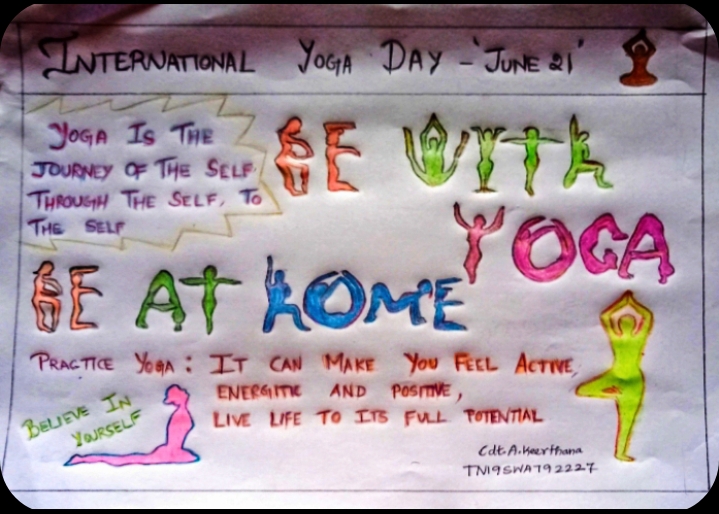 INTERNATIONAL YOGA DAY - 'JUNE 21'
YOGA IS THE
JOURNEY OF THE SELF,
THROUGH THE SELF, TO
THE SELF
BE WITH
YOGA
BE AT HOME
PRACTICE YOGA : IT CAN MAKE YOU FEEL ACTIVE,
ENERGITIC AND POSITIVE,
LIVE LIFE TO ITS FULL POTENTIAL
BELIEVE IN
YOURSELF
Cdt. A. Keerthana
TN19SWA792227